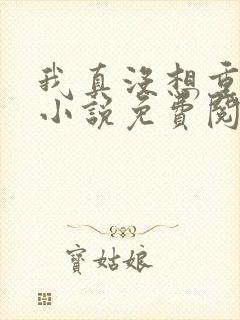 我真没想重
小说免費閱
寳姑娘